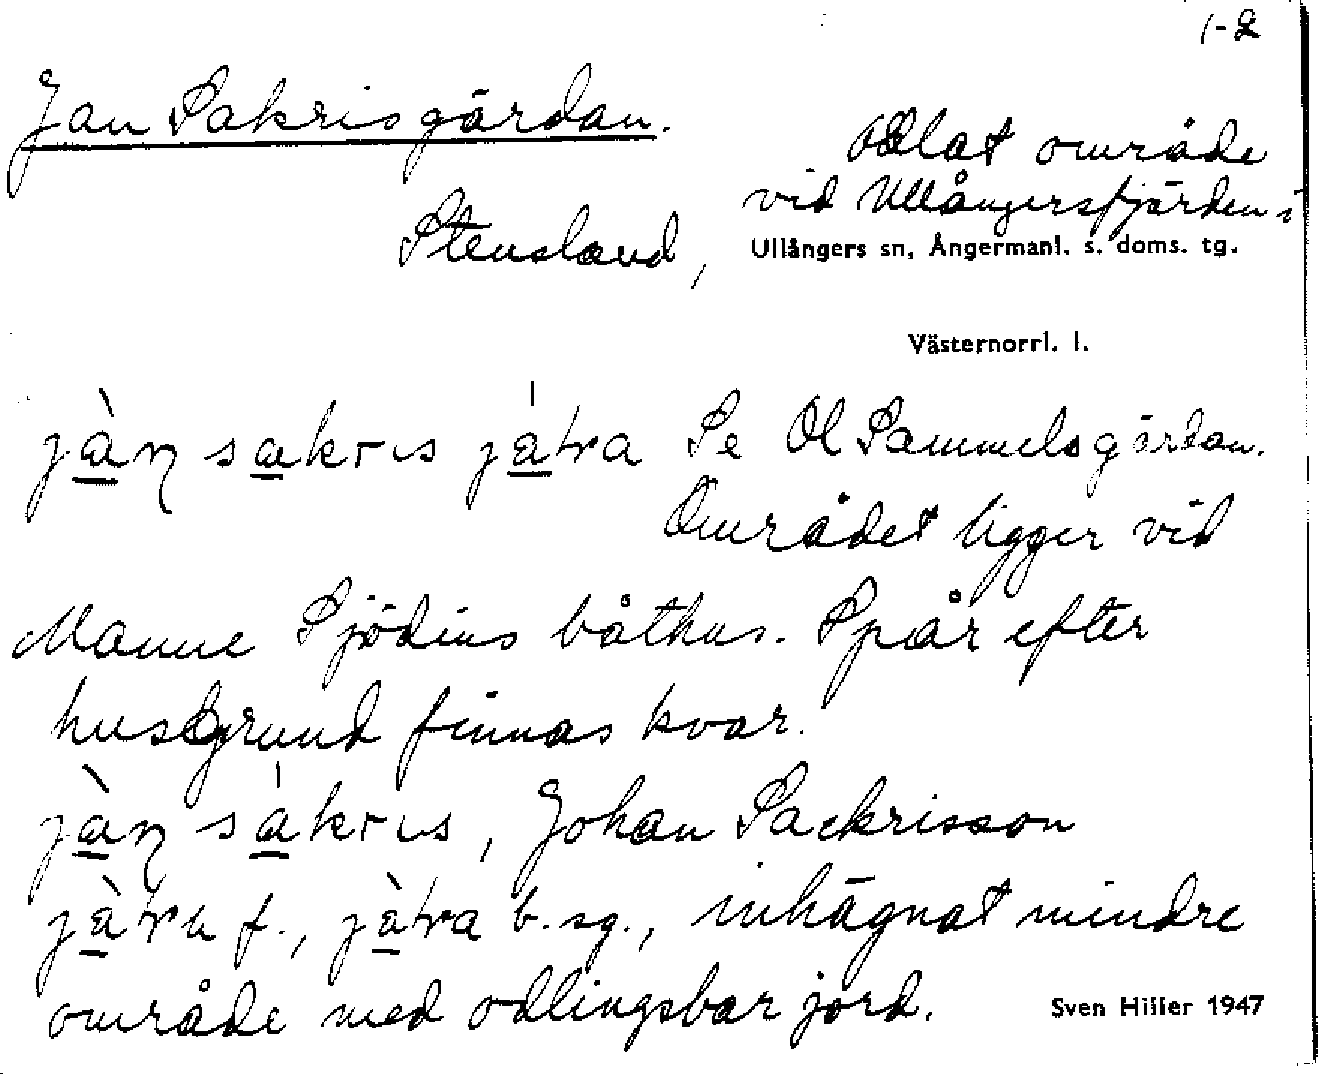 1-2
Jan Sakrisgärdan.
Odlat område
vid Ullångersfjärden i
Stensland,
Ullångers sn, Ångermanl. s. doms. tg.
Västernorrl. l.
Se Ol Sammelsgärdan.
Området ligger vid
Manne Sjödins båthus. Spår efter
husgrund finnas kvar.
Johan Sackrisson
f., b. sg., inhägnat mindre
område med odlingsbar jord.
Sven Hiller 1947